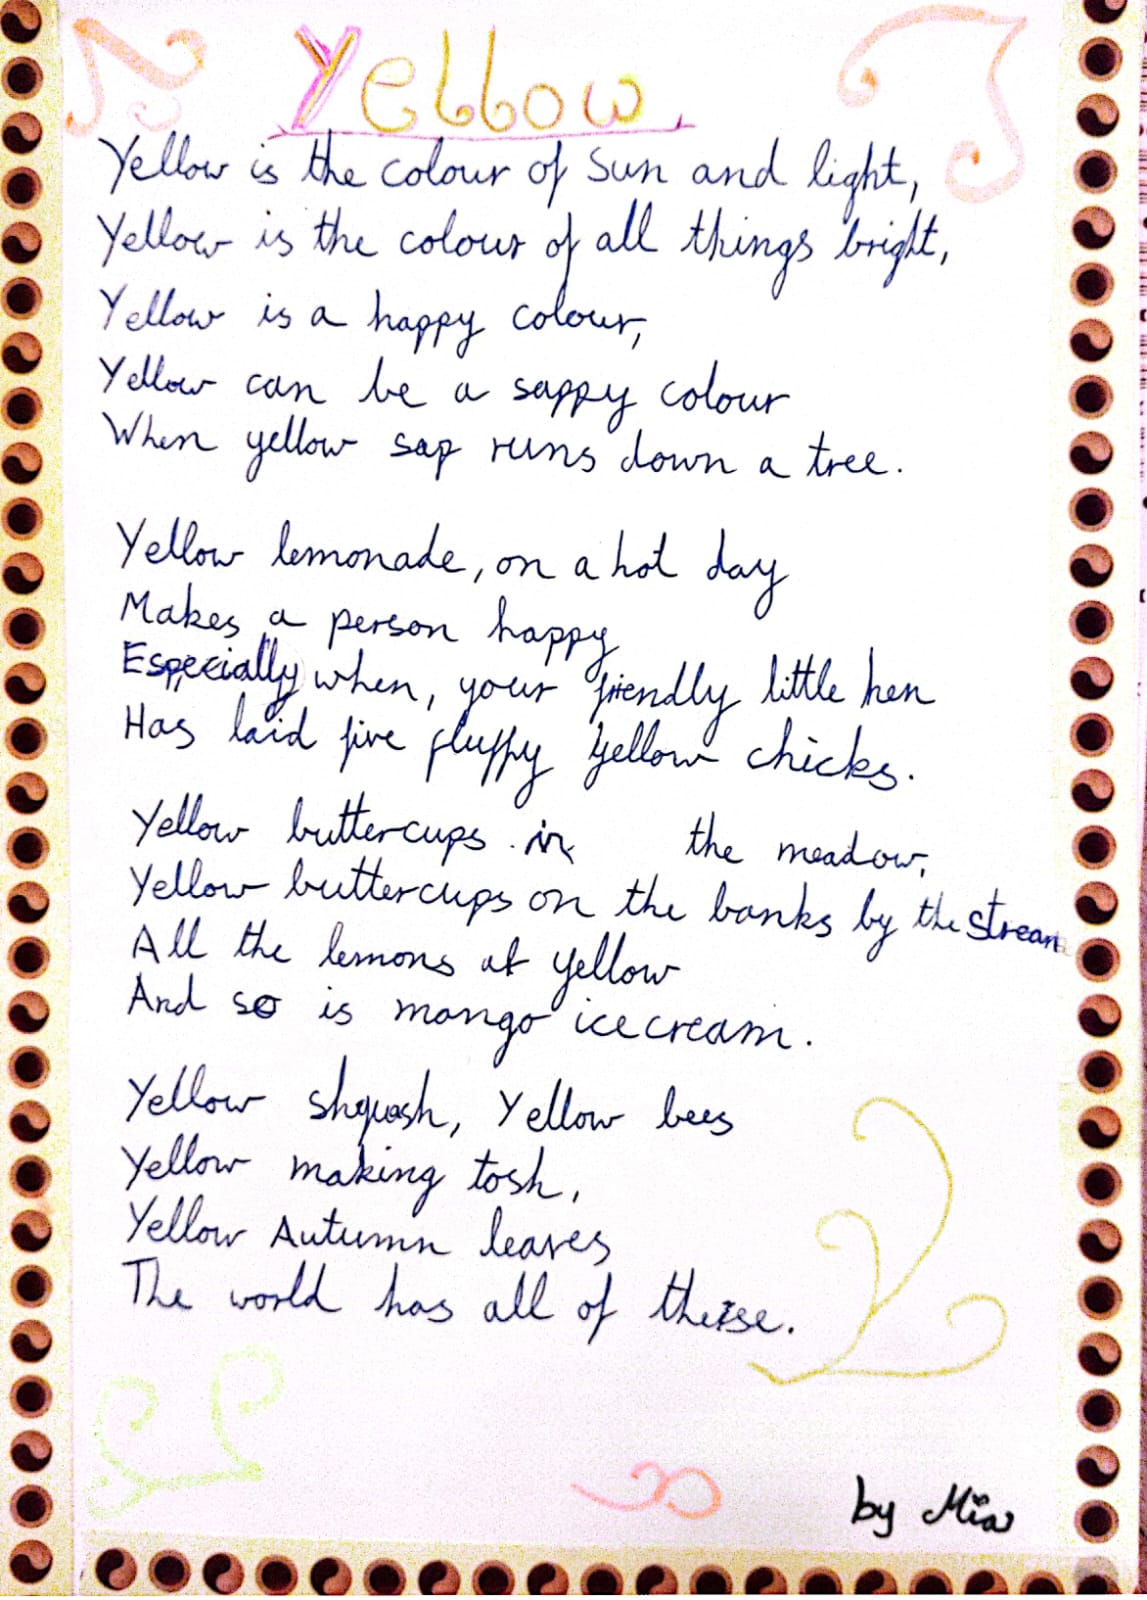 Yellow
Yellow is the colour of Sun and light,
Yellow is the colour of all things bright,
Yellow is a happy colour,
Yellow can be a sappy colour
When yellow sap runs down a tree.
Yellow lemonade, on a hot day
Makes a person happy
Especially when, your friendly little hen
Has laid five fluffy yellow chicks.
Yellow buttercups in the meadow,
Yellow buttercups on the banks by the stream
All the lemons at yellow
And so is mango icecream.
Yellow shquash, Yellow bees
Yellow making tosh,
Yellow Autumn leaves
The world has all of these.
by Mia